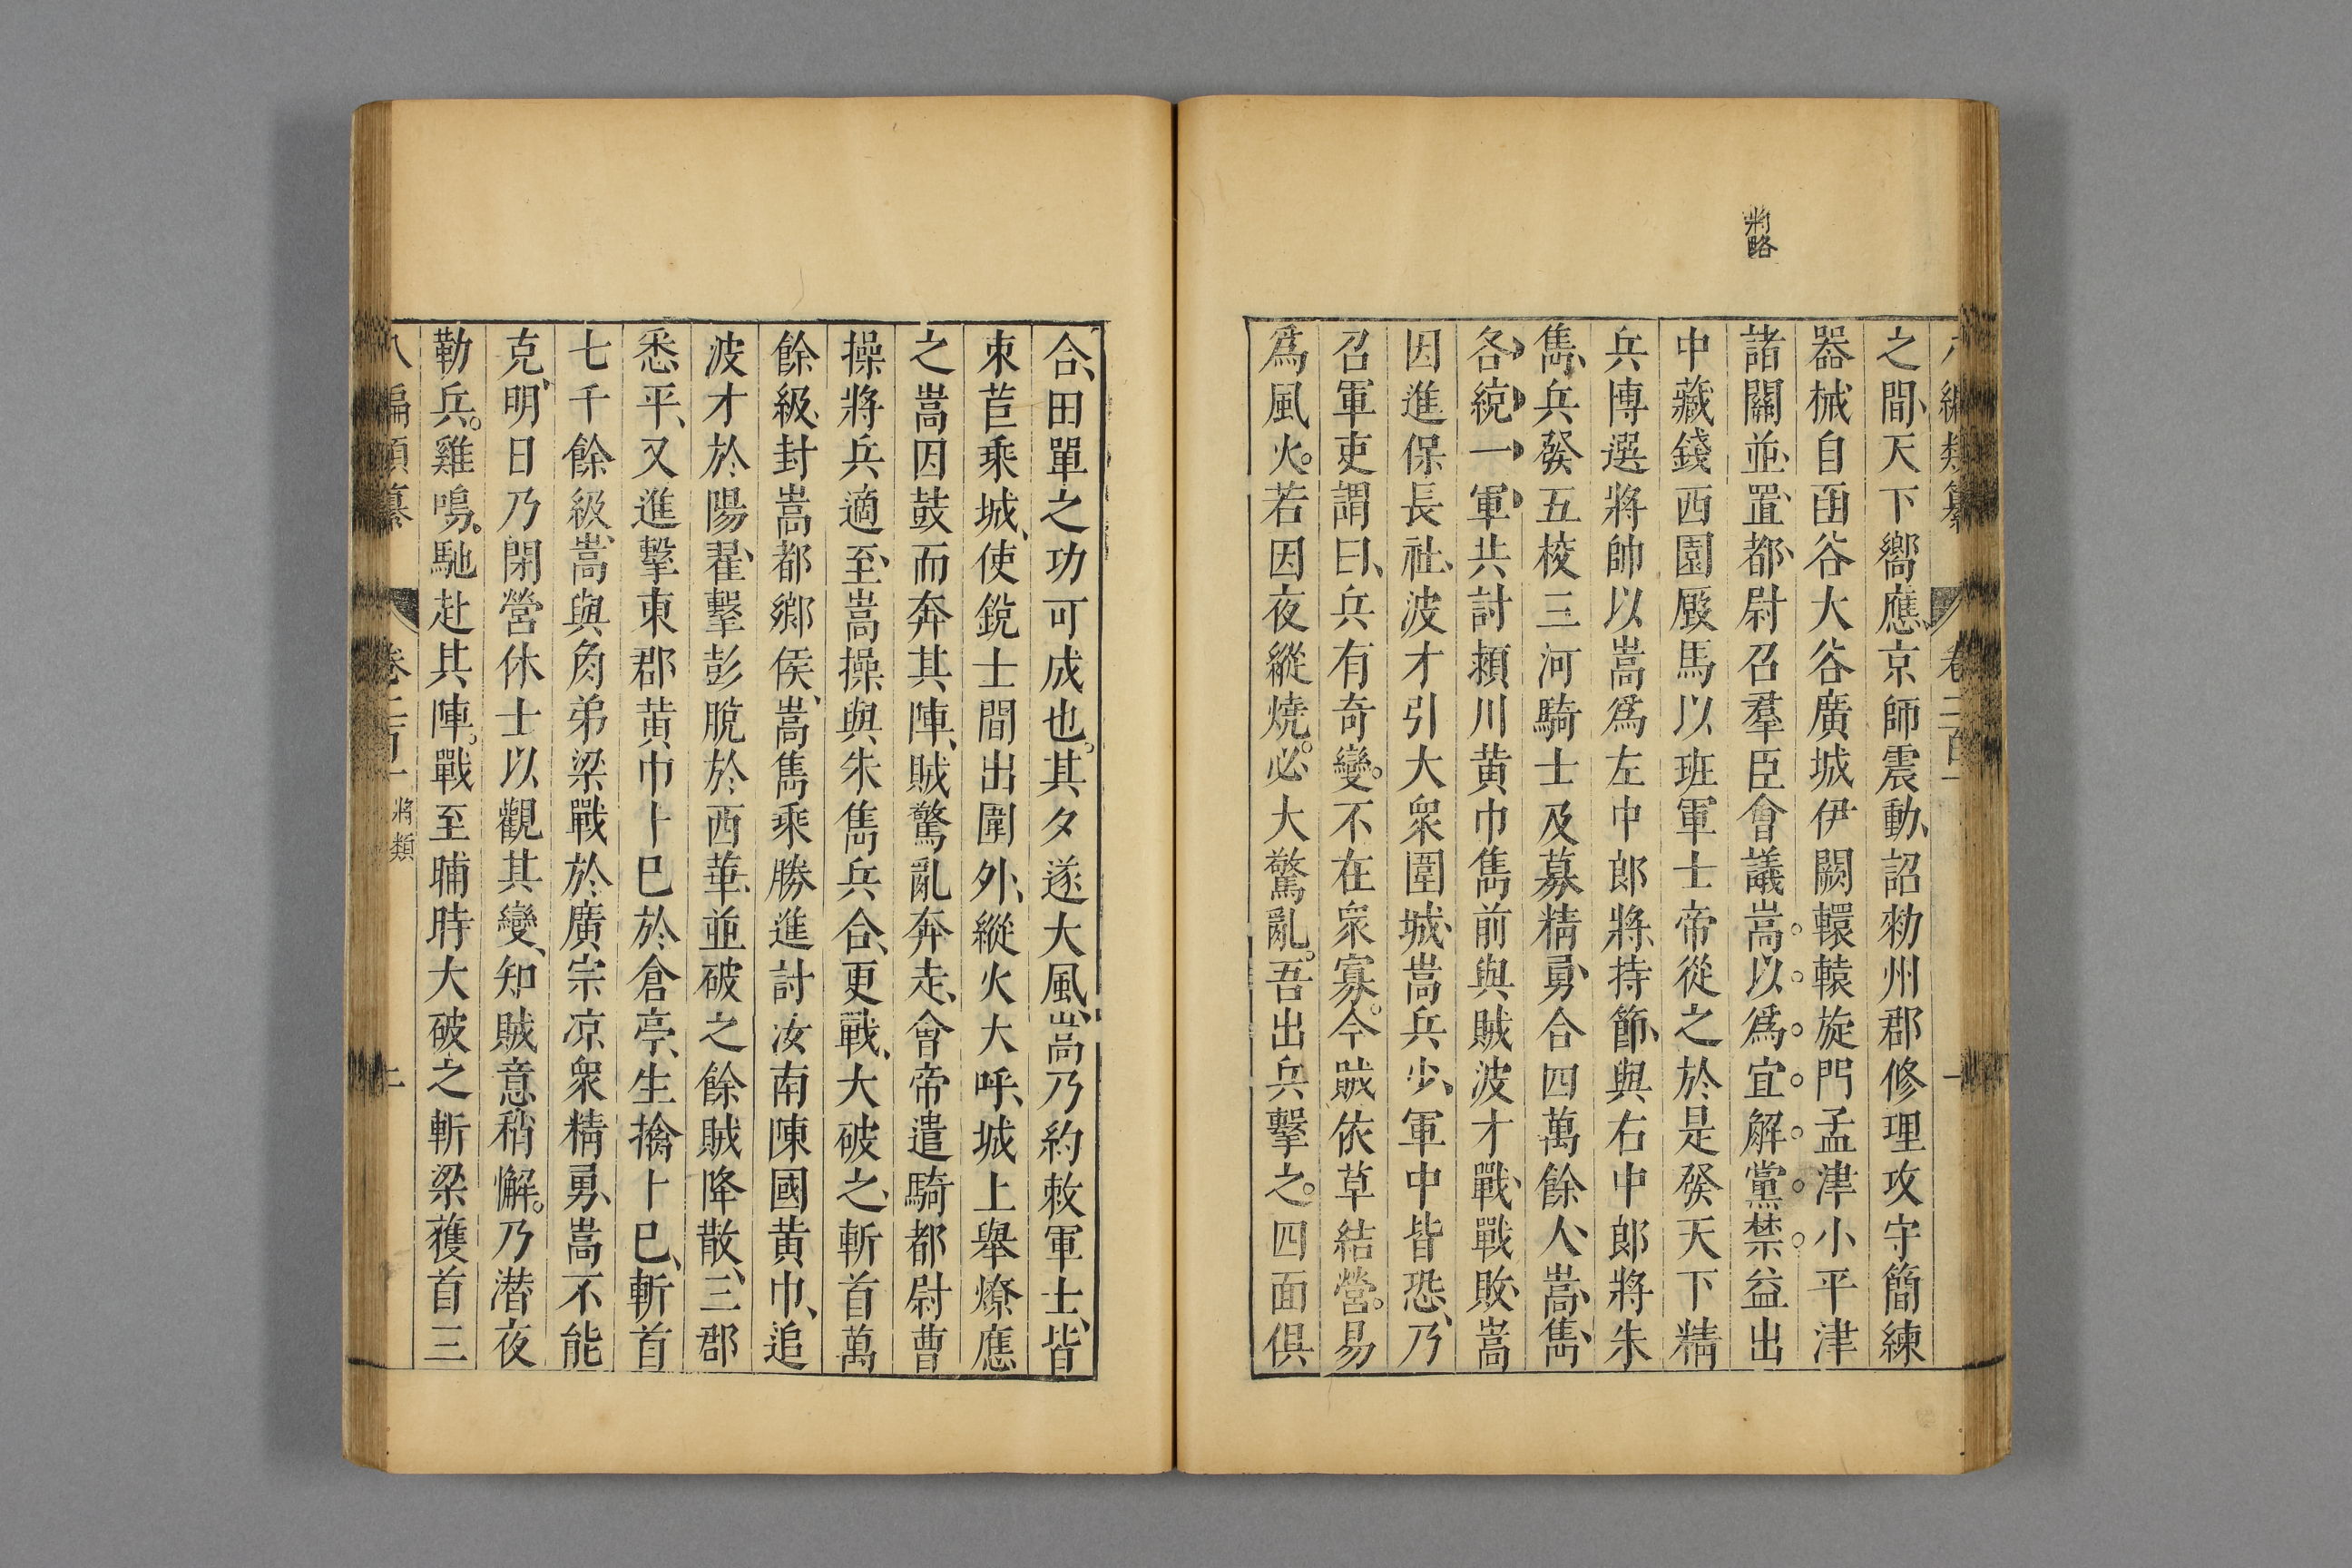 將略
八編類纂 卷二百一 一
之間、天下嚮應、京師震動、詔勑州郡修理攻守簡練
器械自函谷大谷廣城伊闕轘轅旋門孟津小平津
諸關並置都尉召羣臣會議嵩以爲宜解黨禁益出
中藏錢西園廄馬以班軍士帝從之於是發天下精
兵博選將帥以嵩爲左中郎將、持節、與右中郎將朱
雋、兵發五校三河騎士及募精勇、合四萬餘人、嵩、雋、
各統一軍共討潁川黄巾雋前與賊波才戰、戰敗、嵩
因進保長社、波才引大衆圍城、嵩兵少、軍中皆恐、乃
召軍吏謂曰、兵有奇變。不在衆寡。今賊依草結營。易
爲風火。若因夜縱燒。必大驚亂。吾出兵擊之。四面俱
合、田單之功可成也。其夕遂大風、嵩乃約敕軍士、皆
束苣乘城、使銳士間出圍外、縱火大呼、城上舉燎應
之嵩因鼓而奔其陣、賊驚亂奔走、會帝遣騎都尉曹
操將兵適至、嵩操與朱雋兵合、更戰、大破之、斬首萬
餘級、封嵩都鄉侯、嵩雋乘勝進討汝南陳國黄巾、追
波才於陽翟、擊彭脫於西華、並破之餘賊降散、三郡
悉平、又進擊東郡黄巾卜巳於倉亭、生擒卜巳、斬首
七千餘級、嵩與角弟梁戰於廣宗凉衆精勇、嵩不能
克、明日乃閉營休士以觀其變、知賊意稍懈。乃潜夜
勒兵。雞鳴。馳赴其陣。戰至晡時大破之斬梁獲首三
八編類纂 卷二百一 將類 二